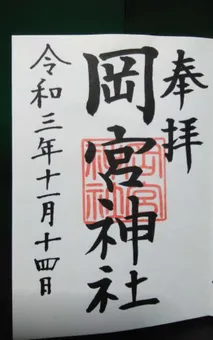 奉拝
岡宮神社
令和三年十一月十四日
岡宮
神社